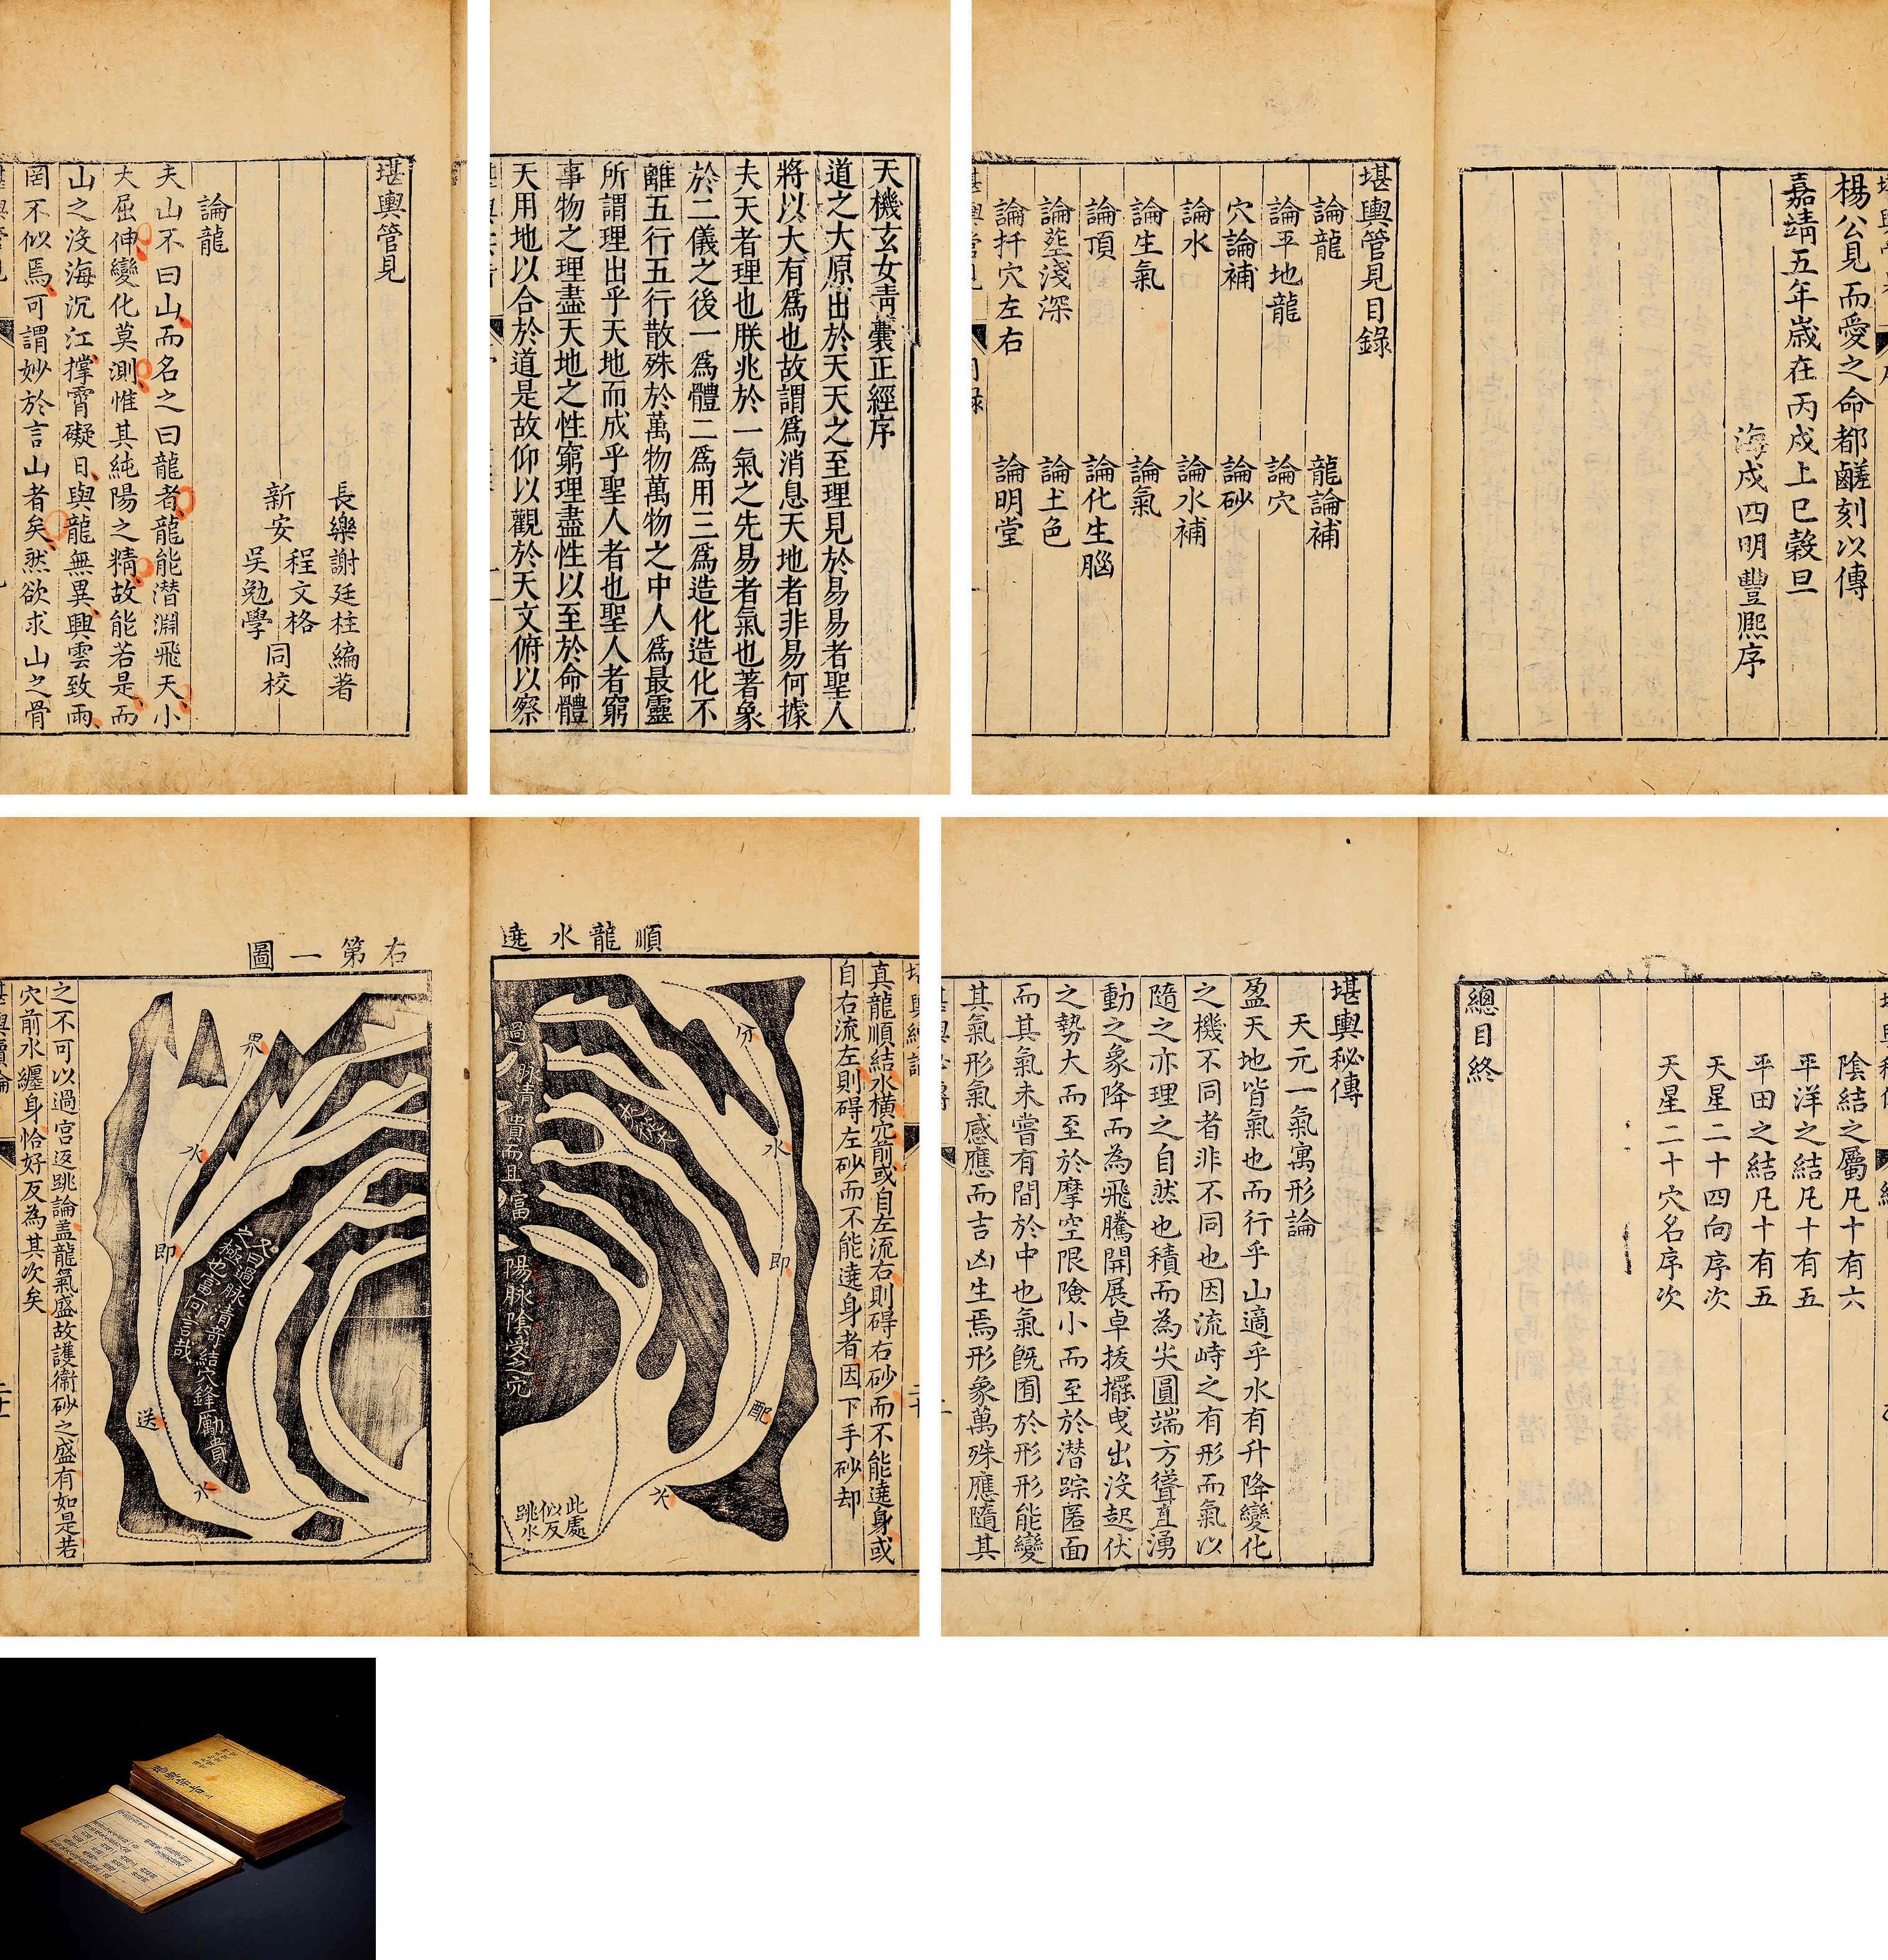 堪輿管見
長樂謝廷柱編著
新安
程文格
吳勉學
同校
論龍
夫山不曰山而名之曰龍者龍能潛淵飛天小
大屈伸變化莫測惟其純陽之精故能若是而
山之沒海沉江撑霄礙日與龍無異興雲致雨
罔不似焉可謂妙於言山者矣然欲求山之骨
天機玄女靑囊正經序
道之大原出於天天之至理見於易易者聖人
將以大有爲也故謂爲消息天地者非易何據
夫天者理也朕兆於一氣之先易者氣也著象
於二儀之後一爲體二爲用三爲造化造化不
離五行五行散殊於萬物萬物之中人爲最靈
所謂理出乎天地而成乎聖人者也聖人者窮
事物之理盡天地之性窮理盡性以至於命體
天用地以合於道是故仰以觀於天文俯以察
楊公見而愛之命都鹺刻以傳
嘉靖五年歲在丙戍上巳穀旦
海戍四明豐熈序
堪輿管見目錄
論龍
龍論補
論平地龍
論穴
穴論補
論砂
論水
論水補
論生氣
論氣
論頂
論化生腦
論塟淺深
論土色
論扦穴左右
論明堂
順龍水遶
真龍順結水橫穴前或自左流右則碍右砂而不能遶身或
自右流左則碍左砂而不能遶身者因下手砂却
分
水
即
配
水
陽脉陰受之穴
此處
似反
跳水
右第一圖
界
水
即
送
水
之不可以過宮返跳論盖龍氣盛故護衞砂之盛有如是若
穴前水纒身恰好反為其次矣
陰結之屬凡十有六
平洋之結凡十有五
平田之結凡十有五
天星二十四向序次
天星二十穴名序次
總目終
堪輿秘傳
天元一氣寓形論
盈天地皆氣也而行乎山適乎水有升降變化
之機不同者非不同也因流峙之有形而氣以
隨之亦理之自然也積而為尖圓端方聳直湧
動之象降而為飛騰開展卓拔擺曳出沒起伏
之勢大而至於摩空限險小而至於潛踪匿面
而其氣未嘗有間於中也氣旣囿於形形能變
其氣形氣感應而吉凶生焉形象萬殊應隨其